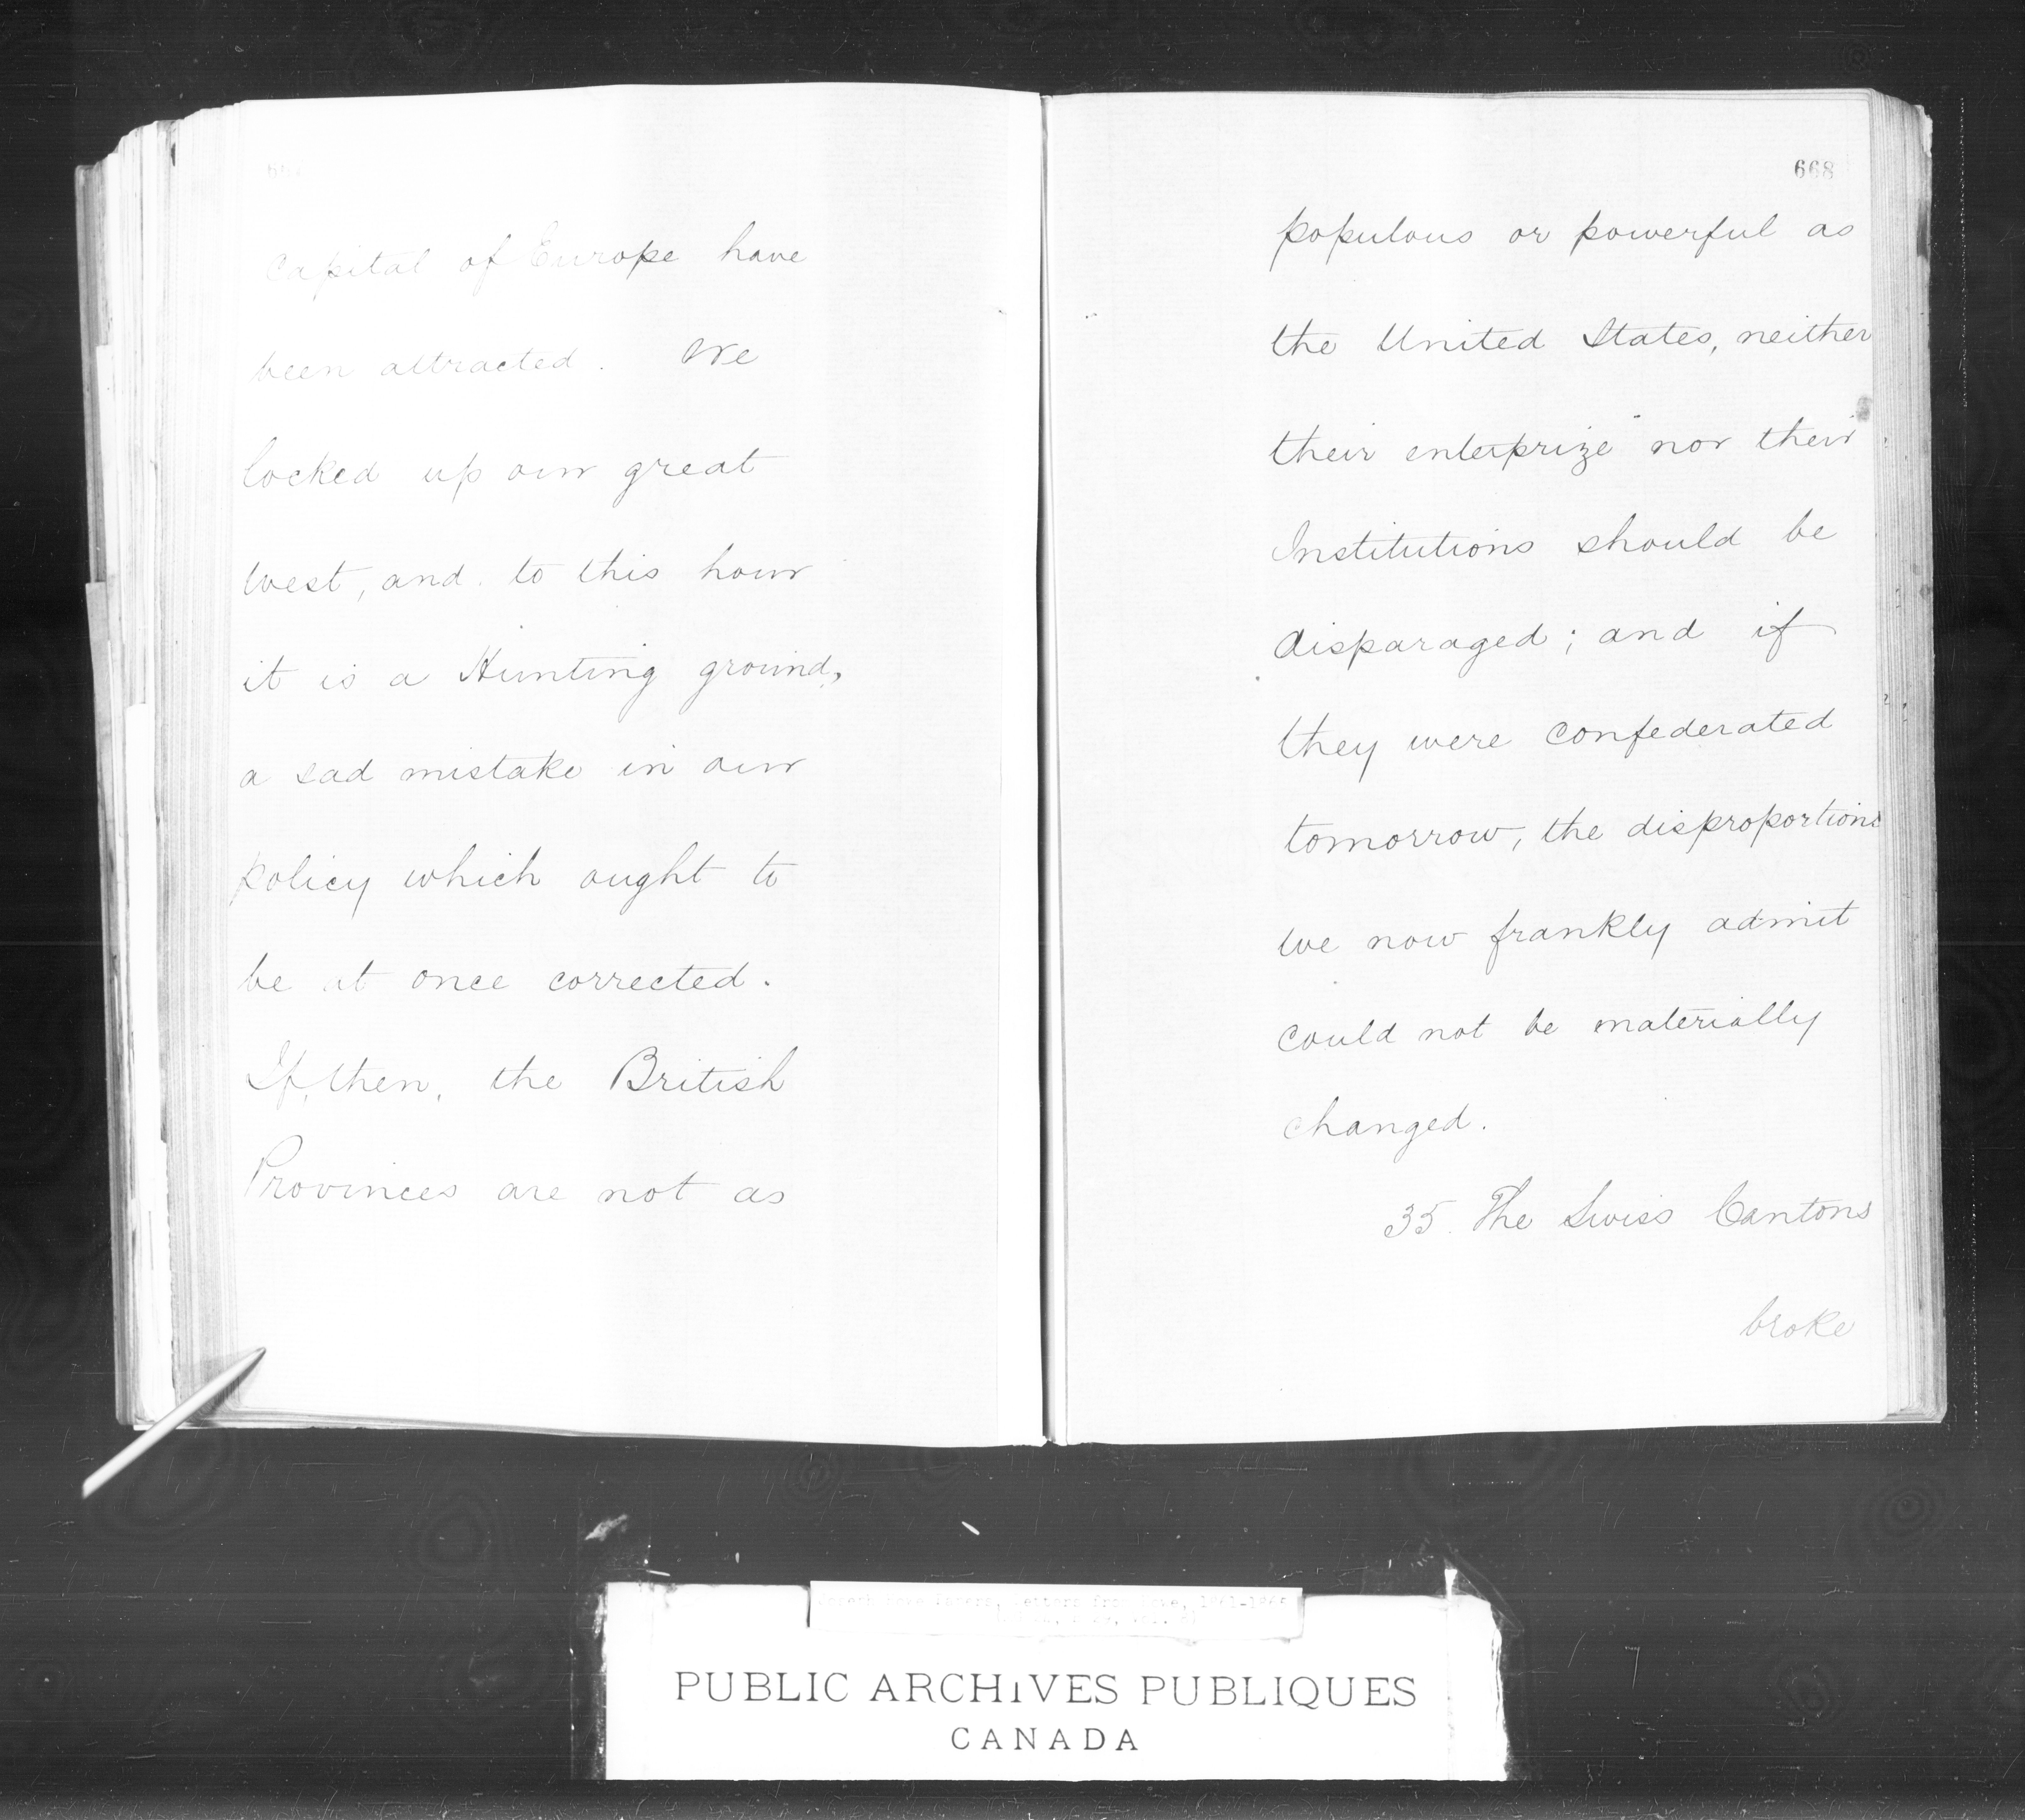 667
capital of Europe have
been attracted. We
locked up our great
west, and to this hour
it is a Hunting ground,
a sad mistake in our
policy which ought to
be at once corrected.
If, then, the British
Provinces are not as
668
populous or powerful as
the United States, neither
their enterprize nor their
Institutions should be
disparaged; and if
they were confederated
tomorrow, the disproportions
we now frankly admit
could not be materially
changed.
35. The Swiss Cantons
broke
Joseph Howe Papers, Letters from Howe, 1861-1866
PUBLIC ARCHIVES PUBLIQUES
CANADA